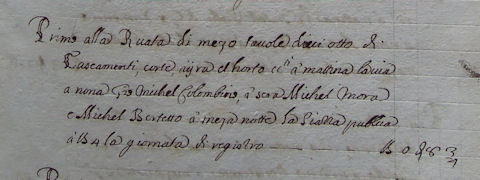 Primo alla Ruata di mezo tavole dieci otto di
Cascamenti, corte ayra et horto cⁱ a' mattina la via
a nona Gio Michel Colombino, a' sera Michel Mora
e Michel Bertetto a' meza notte la piazza publica
a' 4 la giornata di registro 0